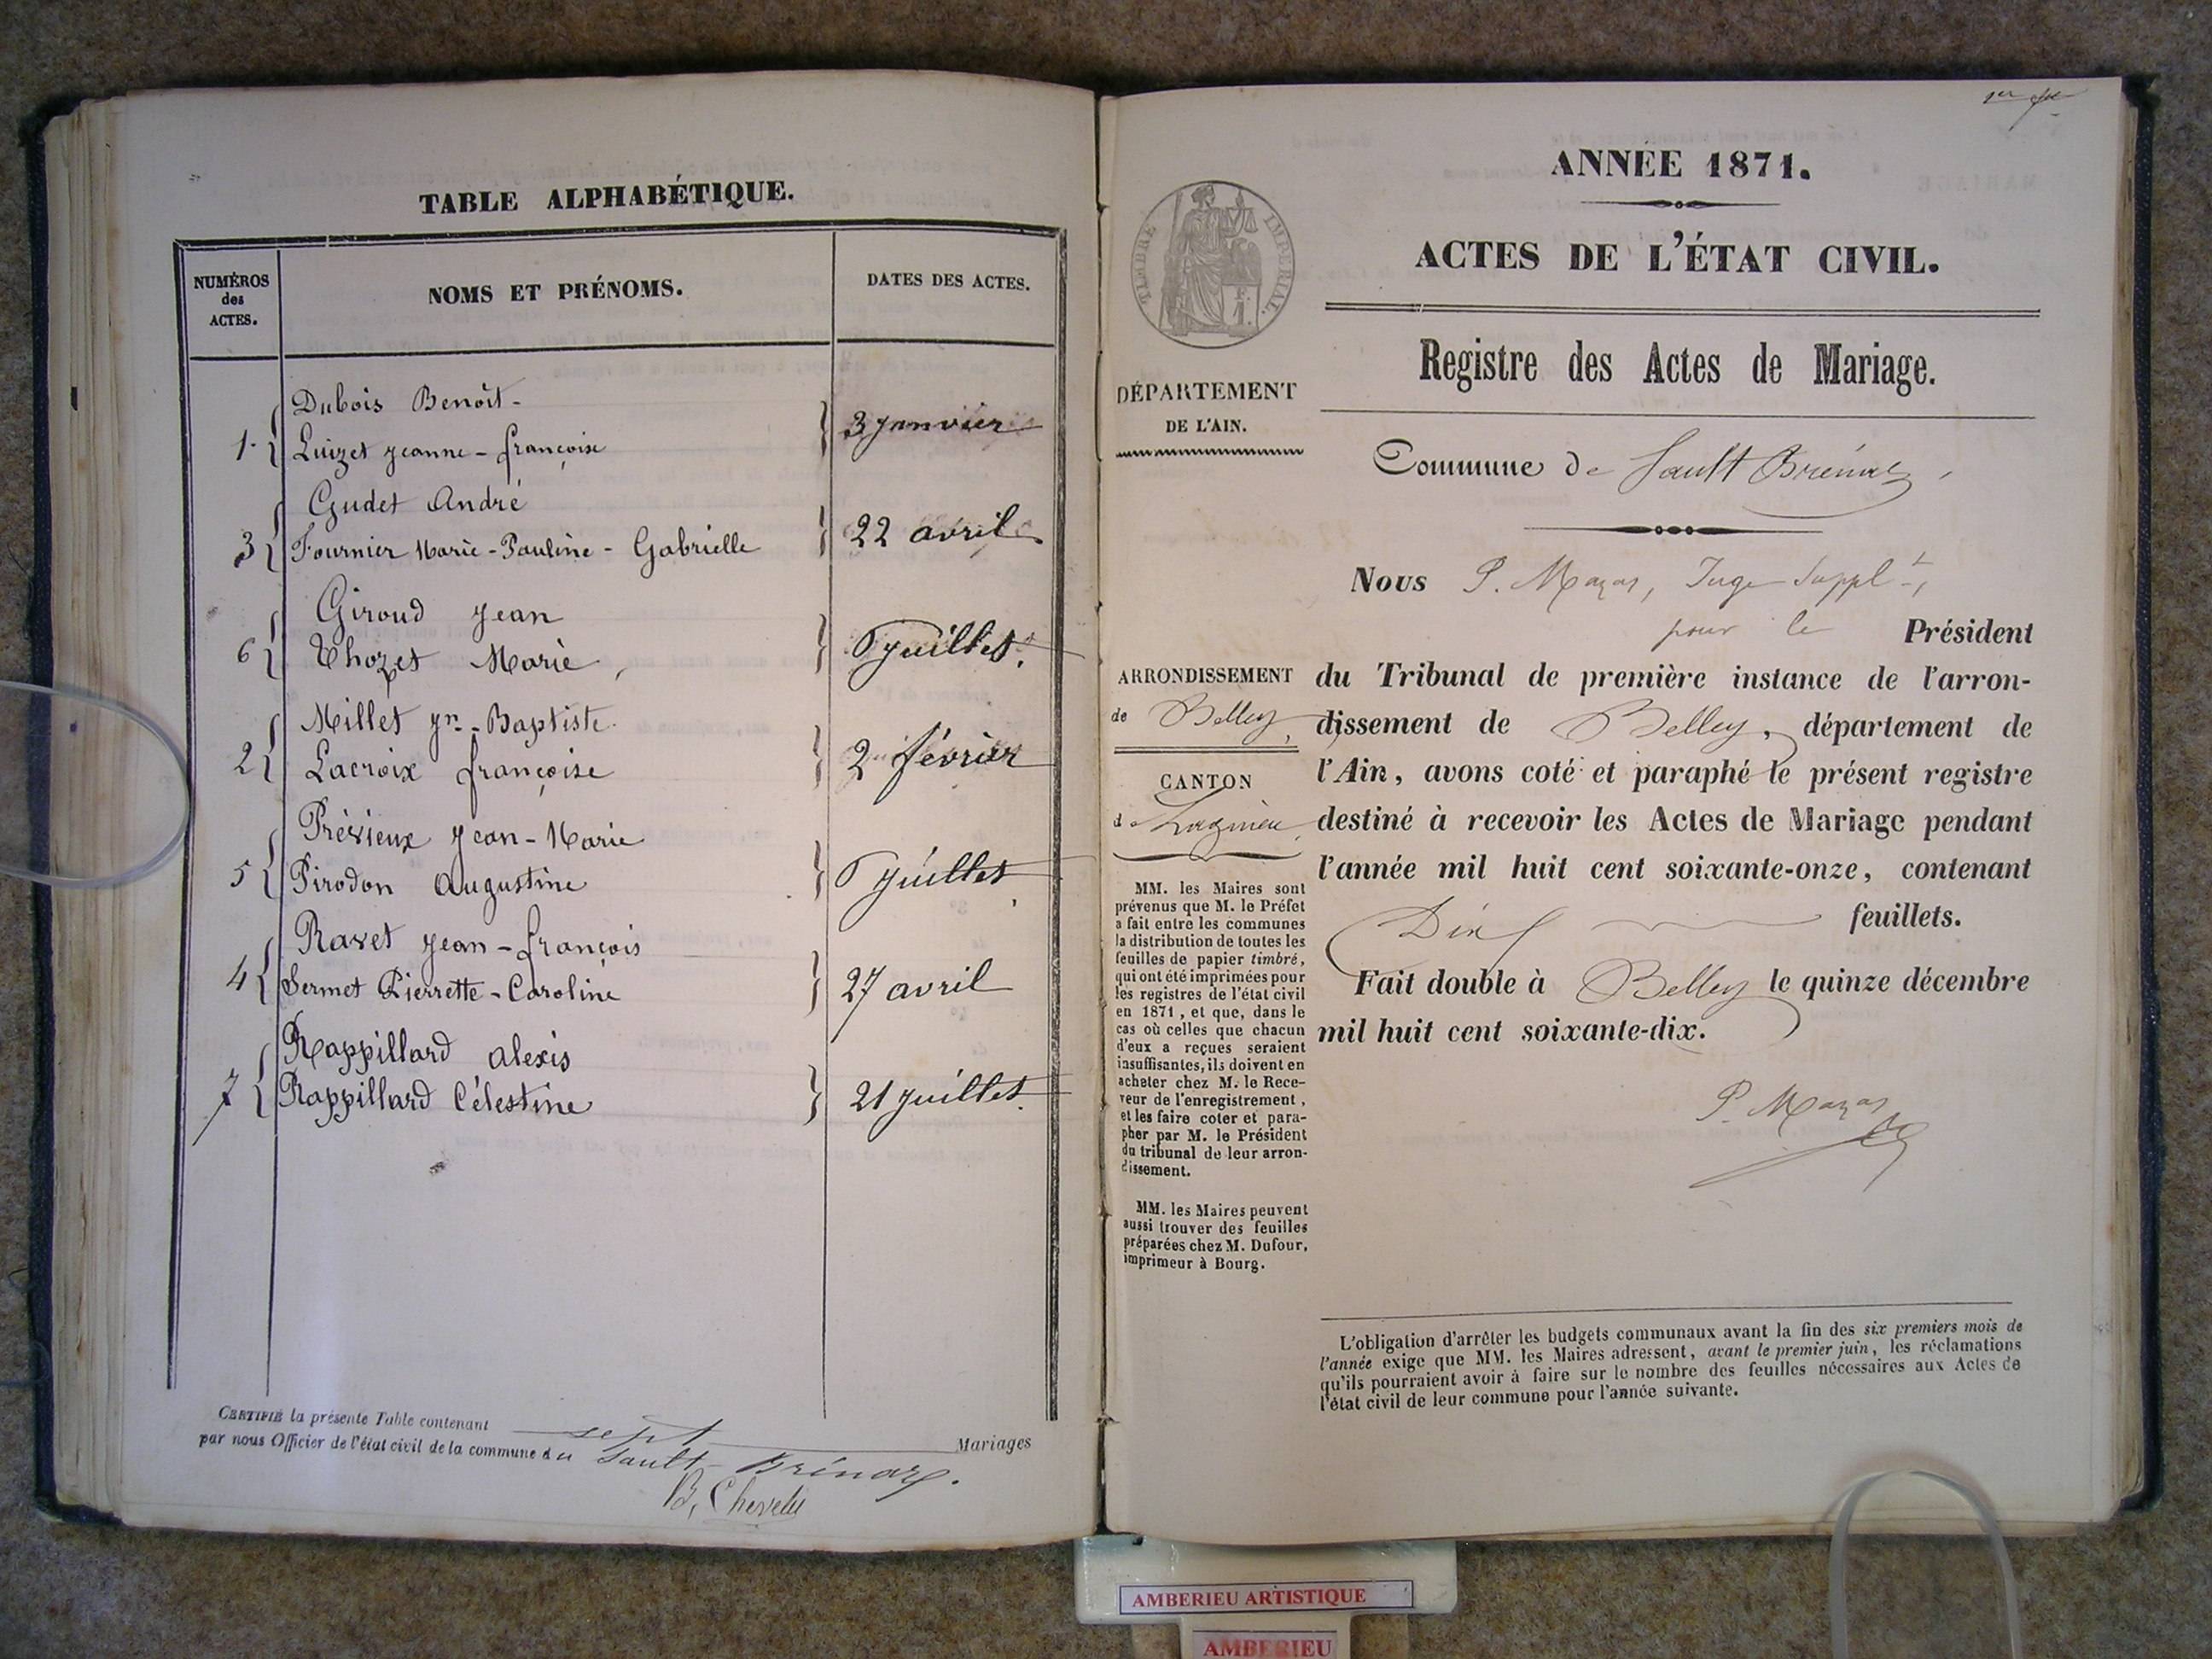 TABLE ALPHABÉTIQUE.
NUMÉROS
des
ACTES.
NOMS ET PRÉNOMS.
DATES DES ACTES.
Dubois Benoît
1. Luizet Jeanne-françoise
3 Janvier
Gudet André
3 Fournier Marie-Pauline-Gabrielle
22 avril
Giroud Jean
6 Thozet Marie
6 Juillet
Millet Jn-Baptiste
2 Lacroix françoise
2 février
Prévieux Jean-Marie
5 Pirodon Augustine
6 Juillet
Ravet Jean-françois
4 Sermet Pierrette-Caroline
27 avril
Rappillard alexis
7 Rappillard Célestine
21 Juillet
CERTIFIÉ la présente Table contenant sept Mariages
par nous Officier de l'état civil de la commune du Sault-Brénaz.
B. Chevelu
1er
ANNÉE 1871.
ACTES DE L'ÉTAT CIVIL.
Registre des Actes de Mariage.
Commune de Sault Brénaz
Nous P. Mazas, Juge Supplt,
pour le Président
du Tribunal de première instance de l'arron-
dissement de Belley, département de
l'Ain, avons coté et paraphé le présent registre
destiné à recevoir les Actes de Mariage pendant
l'année mil huit cent soixante-onze, contenant
Dix feuillets.
Fait double à Belley le quinze décembre
mil huit cent soixante-dix.
P. Mazas
TIMBRE IMPERIAL.
DÉPARTEMENT
DE L'AIN.
ARRONDISSEMENT
de Belley
CANTON
de Lagnieu
MM. les Maires sont
prévenus que M. le Préfet
a fait entre les communes
la distribution de toutes les
feuilles de papier timbré,
qui ont été imprimées pour
les registres de l'état civil
en 1871, et que, dans le
cas où celles que chacun
d'eux a reçues seraient
insuffisantes, ils doivent en
acheter chez M. le Rece-
veur de l'enregistrement,
et les faire coter et para-
pher par M. le Président
du tribunal de leur arron-
dissement.
MM. les Maires peuvent
aussi trouver des feuilles
préparées chez M. Dufour,
imprimeur à Bourg.
L'obligation d'arrêter les budgets communaux avant la fin des six premiers mois de
l'année exige que MM. les Maires adressent, avant le premier juin, les réclamations
qu'ils pourraient avoir à faire sur le nombre des feuilles nécessaires aux Actes de
l'état civil de leur commune pour l'année suivante.
AMBERIEU ARTISTIQUE
AMBERIEU